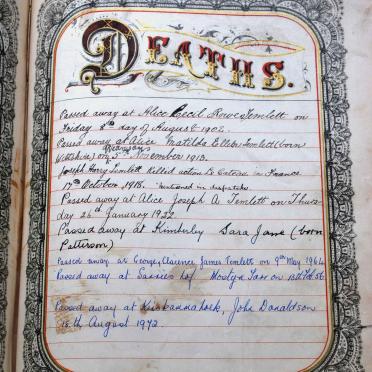 DEATHS.
Passed away at Alice Cecil Rowe Temlett on
Friday 8th day of August 1902.
Passed away at Alice Matilda Ellen Temlett (born
Wiltshire) on Wednesday 5th November 1913.
Joseph Harry Temlett Killed action Le Cateau in France
17th October 1918. Mentioned in dispatches
Passed away at Alice Joseph A. Temlett on Thurs-
day 26th January 1922
Passed away at Kimberley Sara Jane (born
Patterson)
Passed away at George, Clarence James Temlett on 9th May 1964
Passed away at Mostyn on 13th Feb 56
Passed away at Keiskammahoek, John Donaldson
18th August 1972.